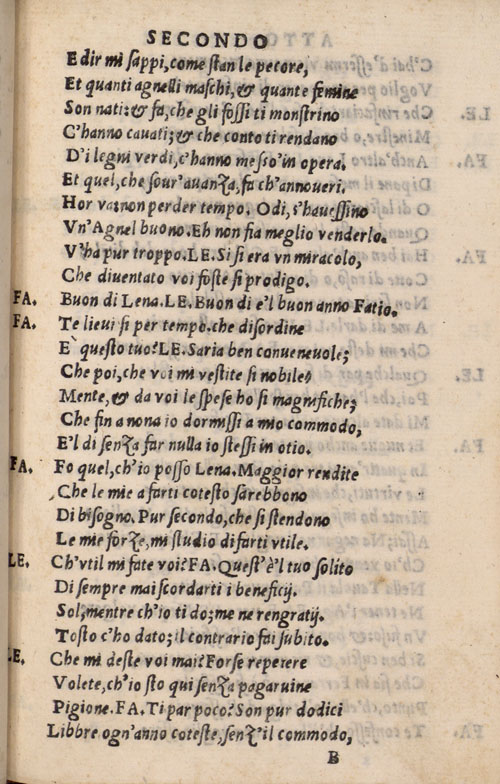 SECONDO
E dir mi sappi, come stan le pecore,
Et quanti agnelli maschi, & quante femine
Son nati: & fa, che gli fossi ti monstrino
C'hanno cauati; & che conto ti rendano
D'i legni verdi, c'hanno messo'in opera.
Et quel, che sour'auanza, fa ch'annoueri.
Hor va: non perder tempo. Odi, s'hauessino
Vn'Agnel buono. Eh non fia meglio venderlo.
V'ha pur troppo. LE. Si si era vn miracolo,
Che diuentato voi foste si prodigo.
FA. Buon di Lena. LE. Buon di e'l buon anno Fatio.
FA. Te lieui si per tempo. che disordine
E` questo tuo? LE. Saria ben conueneuole;
Che poi, che voi mi vestite si nobile
Mente, & da voi le spese ho si magnifiche;
Che fin a nona io dormissi a mio commodo,
E'l di senza far nulla io stessi in otio.
FA. Fo quel, ch'io posso Lena. Maggior rendite
Che le mie a farti cotesto sarebbono
Di bisogno. Pur secondo, che si stendono
Le mie forze, mi studio di farti vtile.
LE. Ch'vtil mi fate voi? FA. Quest'è'l tuo solito
Di sempre mai scordarti i beneficij.
Sol, mentre ch'io ti do; me ne rengratij.
Tosto c'ho dato; il contrario fai subito.
LE. Che mi deste voi mai? Forse repetere
Volete, ch'io sto qui senza pagaruine
Pigione. FA. Ti par poco? Son pur dodici
Libbre ogn'anno coteste, senz'il commodo,
B